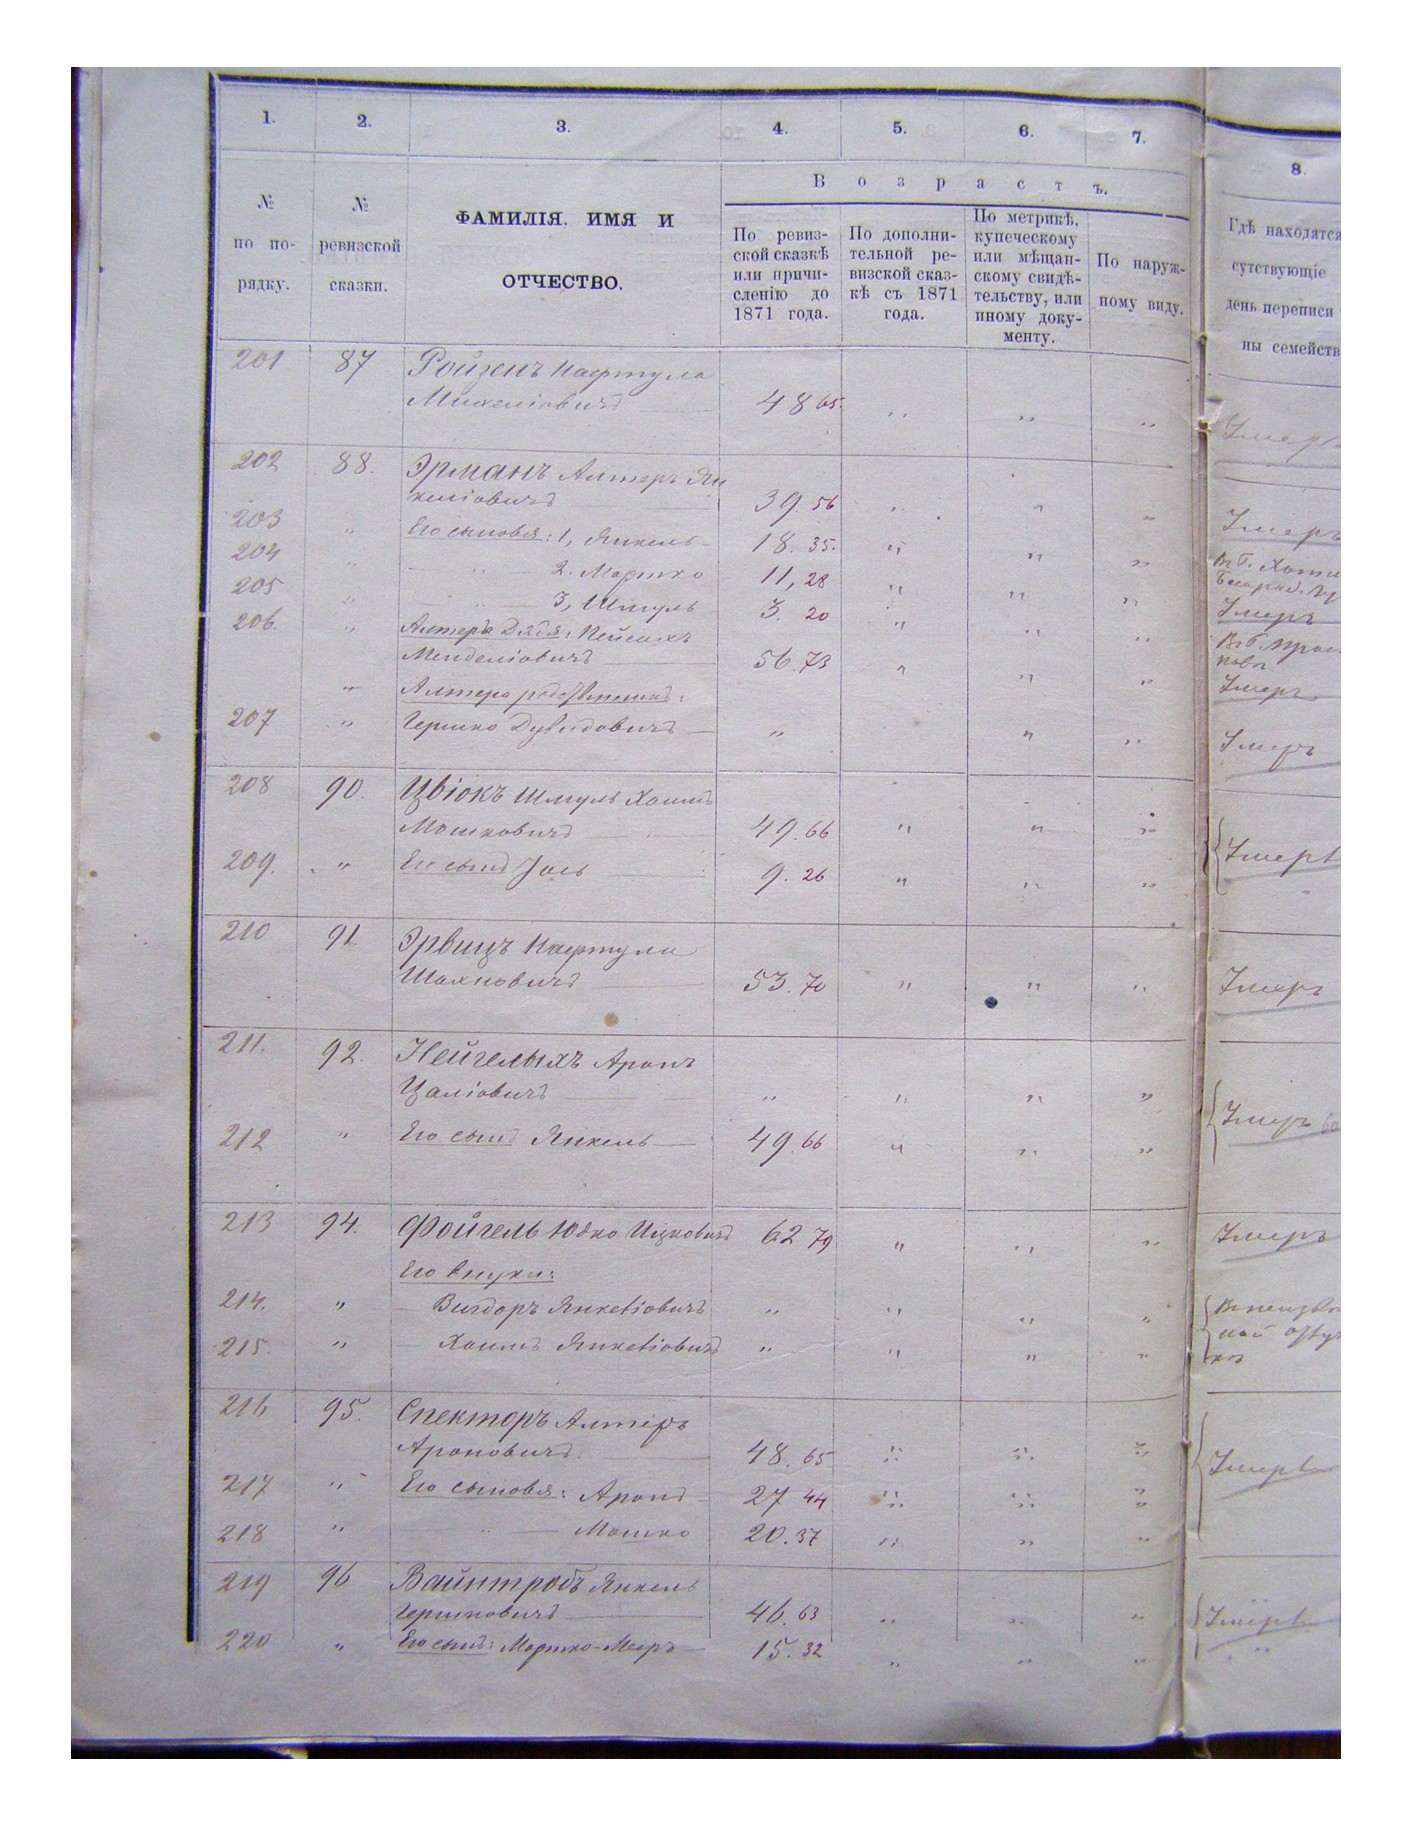 1. 2. 3. 4. 5. 6. 7. 8.
№ по по-рядку.
№ ревизской сказки.
ФАМИЛІЯ. ИМЯ И
ОТЧЕСТВО.
Возрастъ.
По ревиз-
ской сказкѣ
или причи-
сленію до
1871 года.
По дополни-
тельной ре-
визской сказ-
кѣ съ 1871
года.
По метрикѣ,
купеческому
или мѣщан-
скому свидѣ-
тельству, или
иному доку-
менту.
По наруж-
ному виду.
Гдѣ находятся
сутствующіе
день переписи
ны семейств
201 87 Ройзенъ Нафтула
Михеліовичъ 48 65. " " " Умеръ
202 88. Эрманъ Алтеръ Ян
келіовичъ 39. 56 " " " Умеръ
203 " Его сыновья: 1, Янкель 18. 35. " " "
204 " " 2. Мортко 11, 28 " " "
205 " " 3, Шмуль 3. 20 " " " Умеръ
206. " Алтера Дядя: Пейсахъ
Менделіовичъ 56. 73 " " "
" Алтера : Умеръ
207 " Гершко Дувидовичъ " " " Умеръ
208 90. Цвіокъ Шмуль Хаимъ
Мошковичъ 49. 66 " " " Умерл
209. " Его сынъ Іось 9. 26 " " "
210 91. Эрвицъ Нафтула
Шахновичъ 53. 70 " " " Умеръ
211. 92. Нейгелыхъ Аронъ
Цаліовичъ " " " " Умеръ
212 " Его сынъ Янкель 49. 66 " " "
213 94. Фойгель Юдко Ицковичъ 62 79 " " " Умеръ
Его внуки:
214. " Вигдоръ Янкеліовичъ " " " "
215. " Хаимъ Янкеліовичъ " " " "
216 95. Спекторъ Алтеръ
Ароновичъ. 48. 65 " " " Умерл
217 " Его сыновья: Аронъ 27 44 " " "
218 " " Мошко 20. 37 " " "
219 96 Вайнтробъ Янкель
Гершковичъ 46. 63 " " " Умерл
220 " Его сынъ: Мортко-Мееръ 15. 32 " " " "